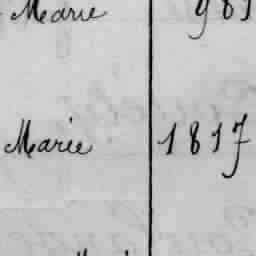 Marie 981
Marie 1817